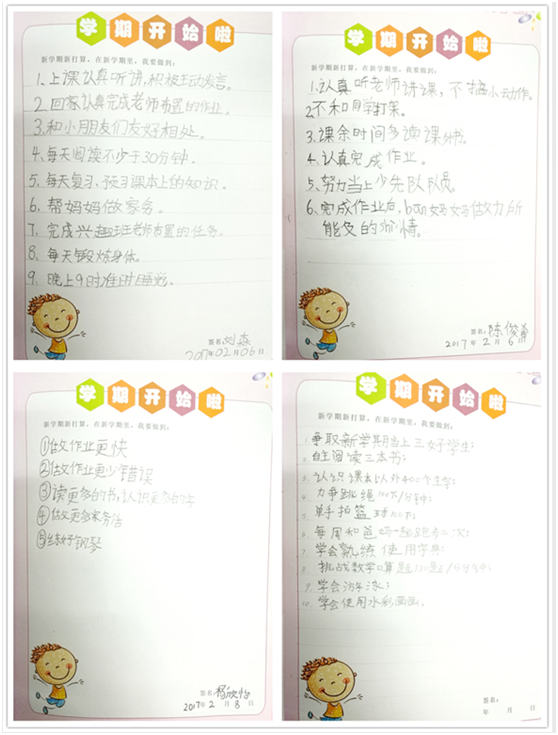 学期开始啦
新学期新打算，在新学期里，我要做到：
1、上课认真听讲，积极主动发言。
2、回家认真完成老师布置的作业。
3、和小朋友们友好相处。
4、每天阅读不少于30分钟。
5、每天复习、预习课本上的知识。
6、帮妈妈做家务。
7、完成兴趣班老师布置的任务。
8、每天锻炼身体。
9、晚上9时准时睡觉。
签名：刘森
2017年02月06日
学期开始啦
新学期新打算，在新学期里，我要做到：
1、认真听老师讲课，不搞小动作。
2、不和同学打架。
3、课余时间多读课外书。
4、认真完成作业。
5、努力当上少先队队员。
6、完成作业后，bān妈妈做力所
能及的事情。
签名：陈俊
2017年2月6日
学期开始啦
新学期新打算，在新学期里，我要做到：
①做作业更快
②做作业更少错误
③读更多的书，认识更多的字
④做更多家务活
⑤练好钢琴
签名：杨欣怡
2017年2月8日
学期开始啦
新学期新打算，在新学期里，我要做到：
1、争取新学期当上三好学生；
2、自主阅读三本书；
3、认识课本以外400个生字；
4、力争跳绳100下/分钟；
5、单手拍篮球100下；
6、每周和爸妈一起跑步二次；
7、学会熟练使用字典；
8、挑战数学口算题100题/分钟；
9、学会游泳；
10、学会使用水彩画画。
签名：
年 月 日